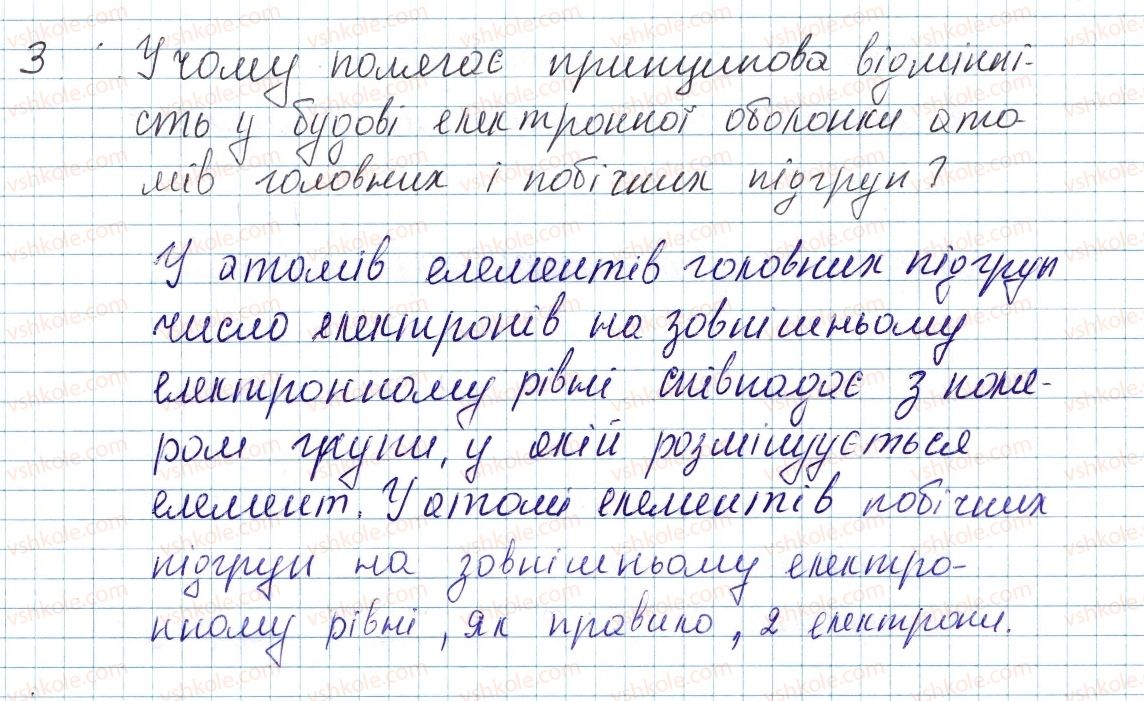 3 У чому полягає принципова відмінні-
сть у будові електронної оболонки ато
мів головних і побічних підгруп?
У атомів елементів головних підгруп
число електронів на зовнішньому
електронному рівні співпадає з номе-
ром групи, у якій розміщується
елемент. У атомі елементів побічних
підгруп на зовнішньому електро-
нному рівні, як правило, 2 електрони.